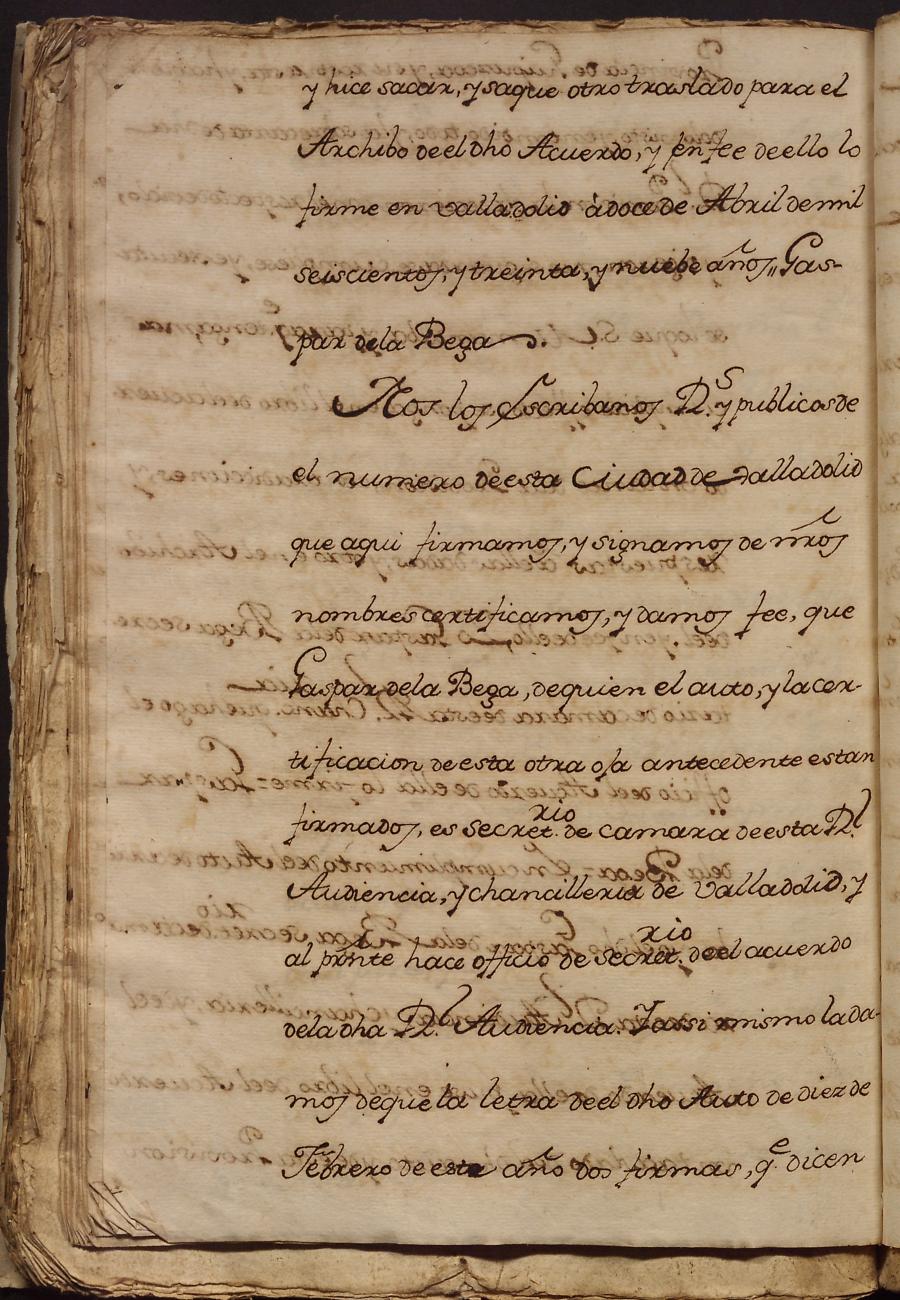 y hice sacar, y saque otro traslado para el
Archibo de el dho Acuerdo, y en fee de ello lo
firme en valladolid à doce de Abril de mil
seiscientos, y treinta, y nuebe años,, Gas-
par de la Bega
Nos los Escribanos R.s y publicos de
el numero de esta Ciudad de Valladolid
que aqui firmamos, y signamos de nros
nombres certificamos, y damos fee, que
Gaspar de la Bega, de quien el auto, y la cer-
tificacion de esta otra oja antecedente estan
firmados, es secret.rio de camara de esta R.l
Audiencia, y chancilleria de Valladolid, y
al prnte hace officio de secret.rio de el acuerdo
de la dha R.l Audiencia. Y assi mismo la da-
mos de que la letra de el dho Auto de diez de
Febrero de esta año dos firmas, q.e dicen